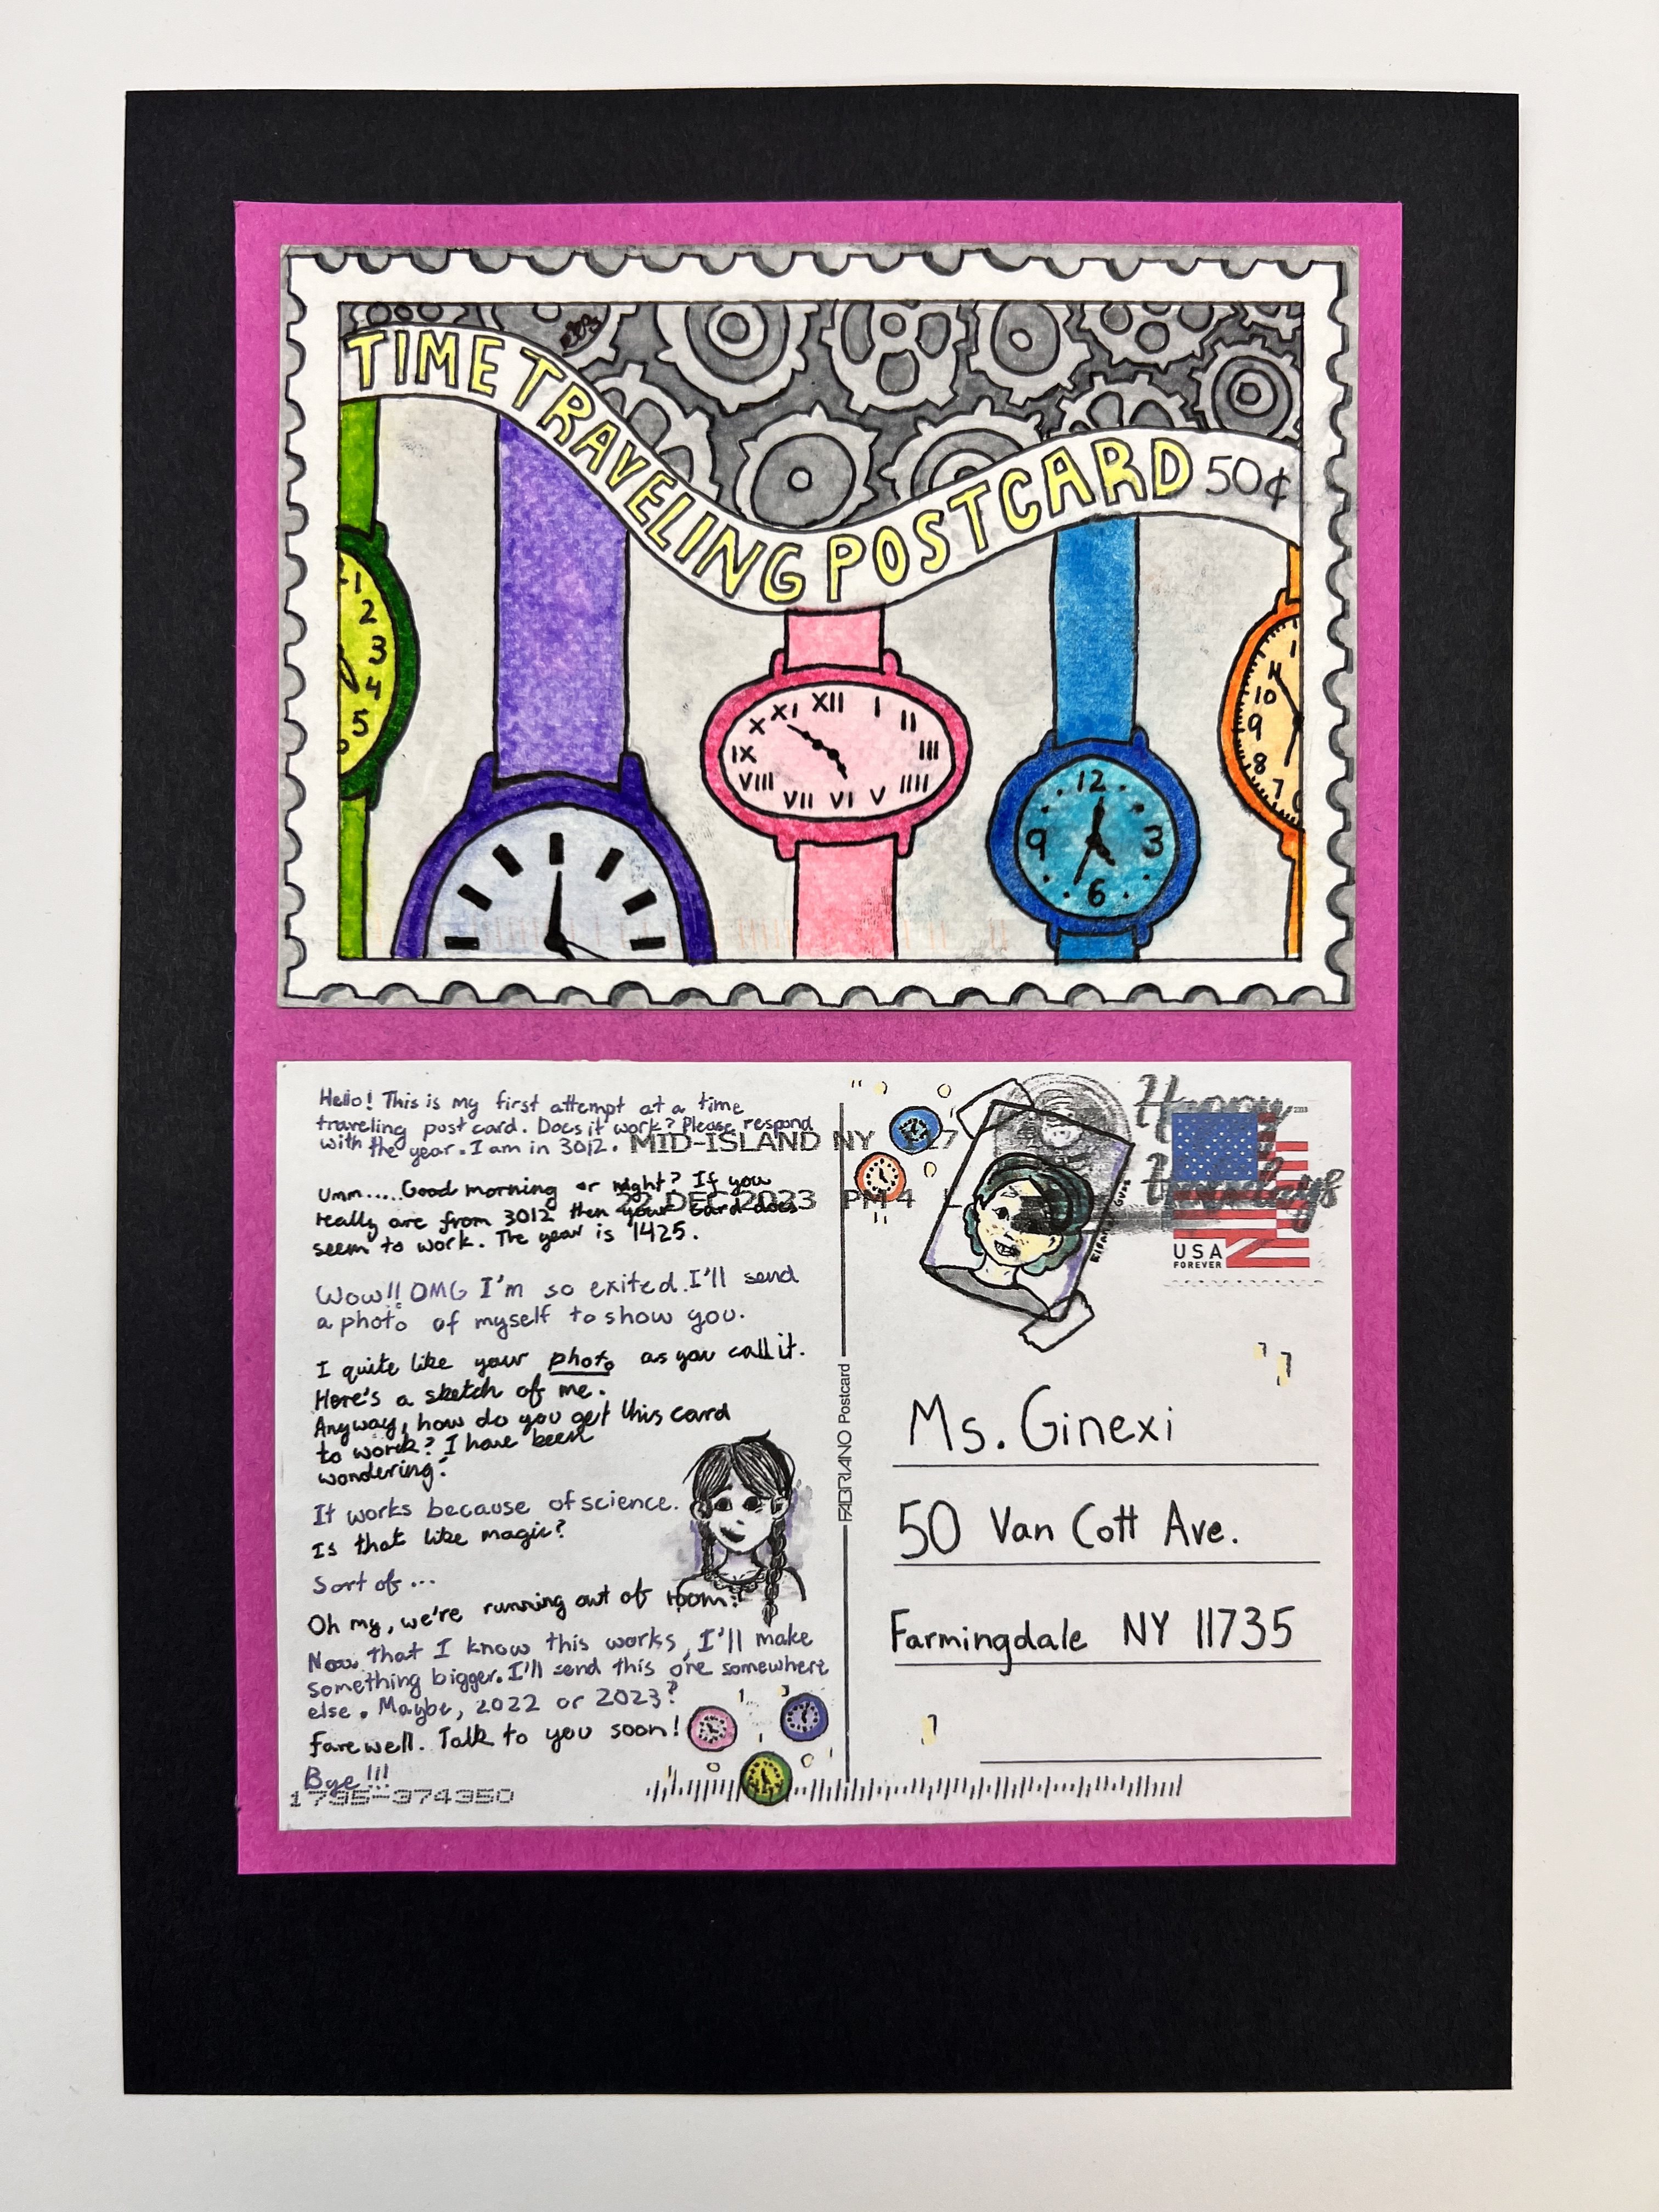 TIME TRAVELING POSTCARD 50¢
1
2
3
4
5
XII
I
II
III
IIII
V
VI
VII
VIII
IX
X
XI
12
3
6
9
10
9
8
7
Hello! This is my first attempt at a time
traveling post card. Does it work? Please respond
with the year. I am in 3012.
MID-ISLAND NY 27
Umm.....Good morning or night? If you
22 DEC 2023 PM 4 L
really are from 3012 then your card does
seem to work. The year is 1425.
Wow!! OMG I'm so exited. I'll send
a photo of myself to show you.
I quite like your photo as you call it.
Here's a sketch of me.
Anyway, how do you get this card
to work? I have been
wondering.
It works because of science.
Is that like magic?
Sort of...
Oh my, we're running out of room!
Now that I know this works, I'll make
something bigger. I'll send this one somewhere
else. Maybe, 2022 or 2023?
Farewell. Talk to you soon!
Bye!!!
1 735-374350
FABRIANO Postcard
Happy
Holidays
USA
FOREVER
Ms. Ginexi
50 Van Cott Ave.
Farmingdale NY 11735